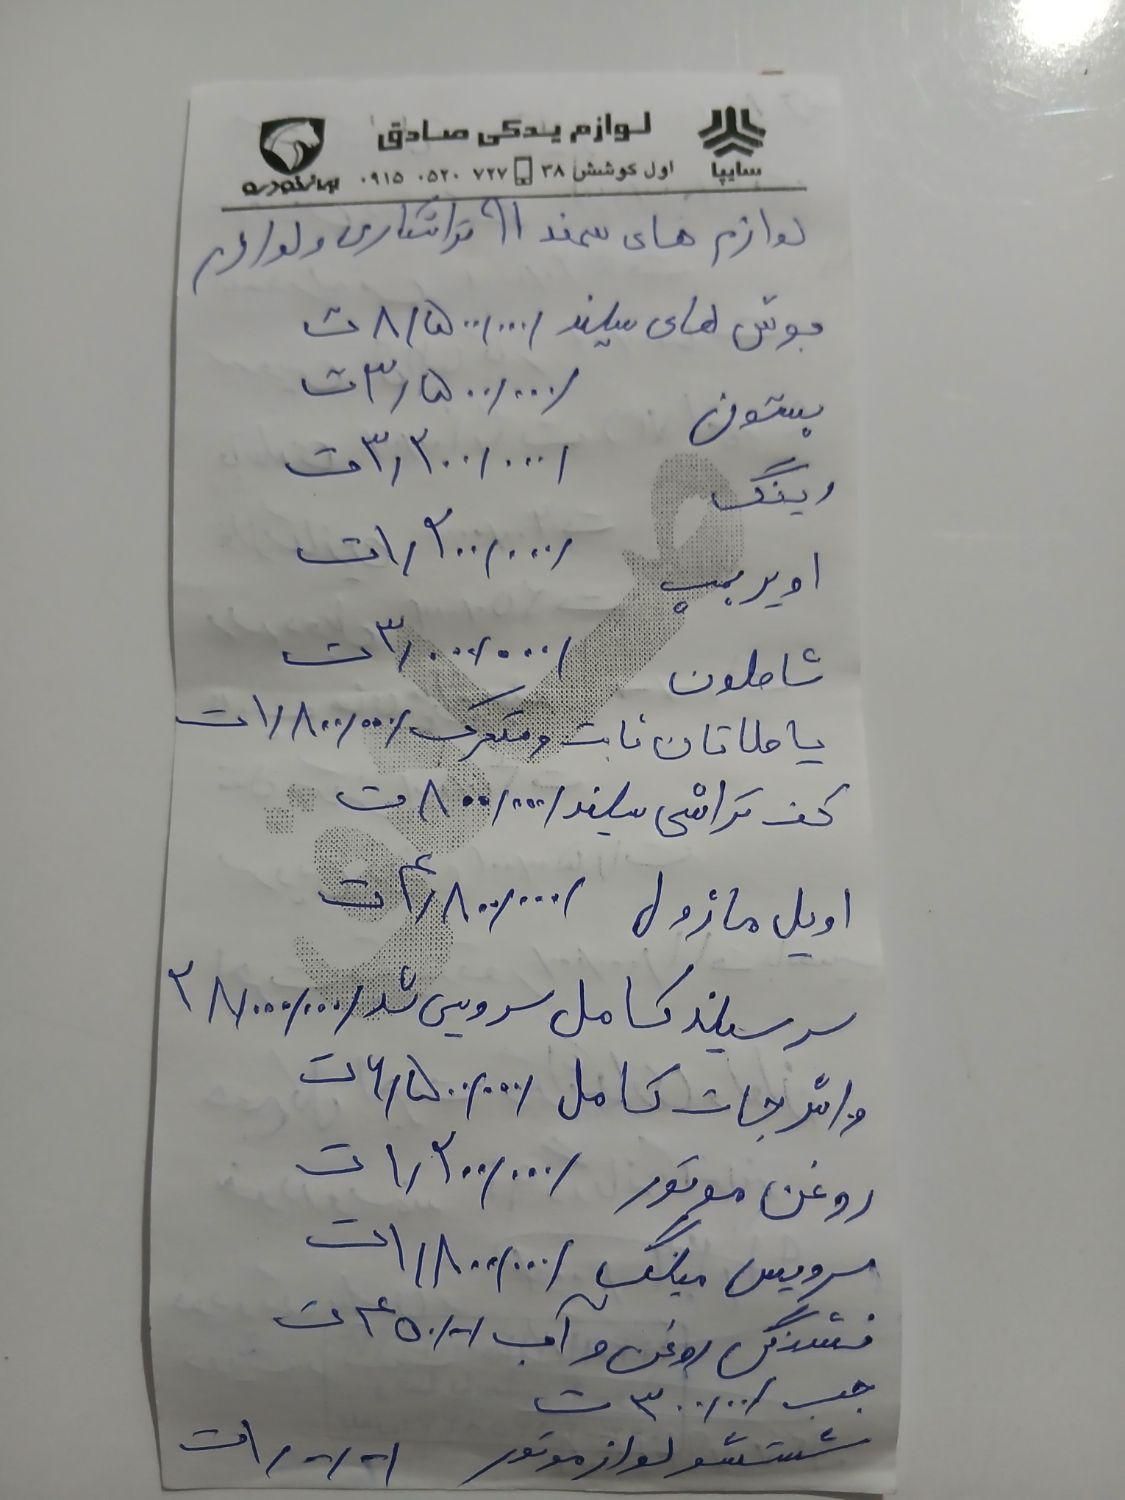 لوازم یدکی صادق
سایپا
ایران‌خودرو
اول کوشش ۳۸ ۰۹۱۵ ۰۵۲۰ ۷۲۷
لوازم های سمند ۹۱ تراشکاری و لوازم
بوش های سیلند ۸/۵۰۰/۰۰۰/ ت
پستون ۳/۵۰۰/۰۰۰/ ت
رینگ ۳/۲۰۰/۰۰۰/ ت
اویر پمپ ۱/۲۰۰/۰۰۰/ ت
شاملون ۳/۰۰۰/۰۰۰/ ت
یاطاقان ثابت و متحرک ۱/۸۰۰/۰۰۰/ ت
کف تراشی سیلند ۸۰۰/۰۰۰/ ت
اویل ماژول ۴/۸۰۰/۰۰۰/ ت
سر سیلند کامل سرویس شد ۲۸/۰۰۰/۰۰۰/
واشر جات کامل ۶/۵۰۰/۰۰۰/ ت
روغن موتور ۱/۲۰۰/۰۰۰/ ت
سرویس میلنگ ۱/۸۰۰/۰۰۰/ ت
فشنگی روغن و آب ۴۵۰/-/ ت
چسب ۳۰۰/۰۰۰/ ت
شستشو لوازم موتور ۱/-/-/ ت